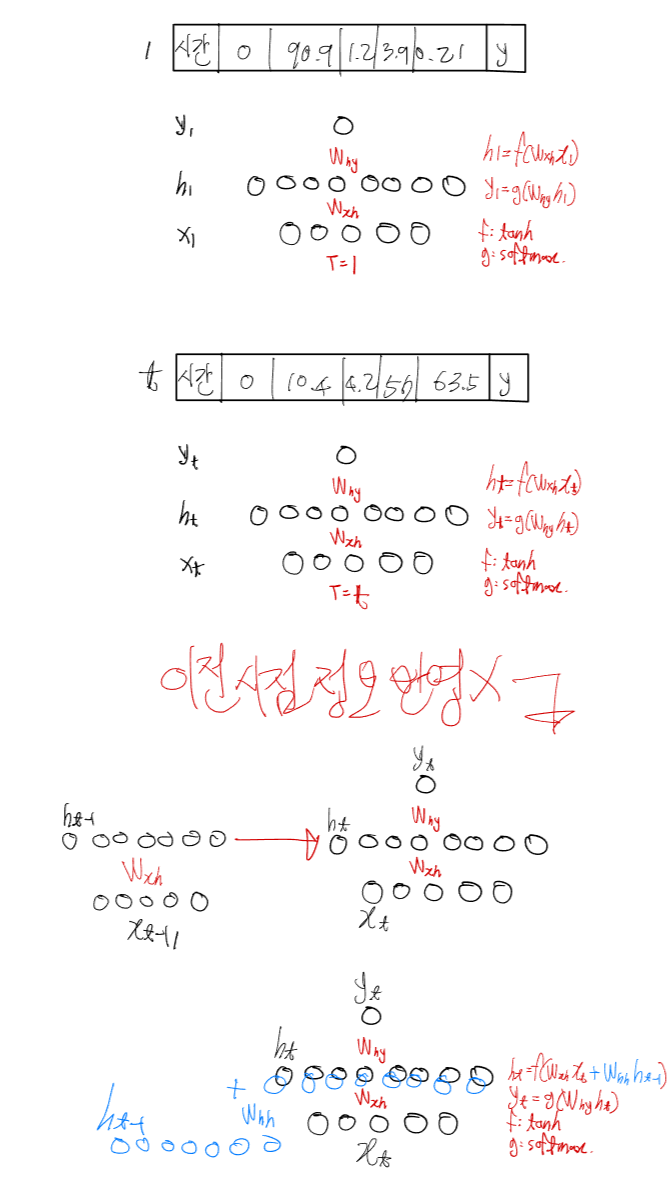 1 시간 0 90.9 1.2 3.9 0.21 y
y₁
Why
h₁
Wxh
x₁
T=1
h₁=f(Wxh x₁)
y₁=g(Why h₁)
f: tanh
g: softmax.
t 시간 0 10.4 4.2 55 63.5 y
yt
Why
ht
Wxh
xt
T=t
ht=f(Wxh xt)
yt=g(Why ht)
f: tanh
g: softmax.
이전시점 정보 반영X
yt
ht-1
ht
Why
Wxh
Wxh
xt-1
xt
yt
ht
Why
+
Wxh
Whh
ht-1
xt
ht=f(Wxh xt+Whh ht-1)
yt=g(Why ht)
f: tanh
g: softmax.